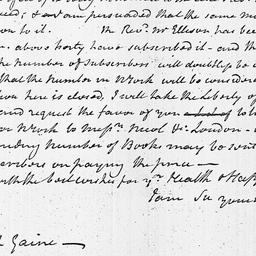 ; & am persuaded that the same m
ion to it. The Revd. Mr Ellison has been
- above forty have subscribed it - and th
the number of Subscribers will doubtless be c
that the number in Work will be conside
hen here is closed, I will take the Liberty of
and request the favor of you to
or Work to Messrs. - London - a
nding number of Books may be sent
cribers on paying the price -
with the best wishes for yr. Health & Hap
I am Sir yours
Gaine -